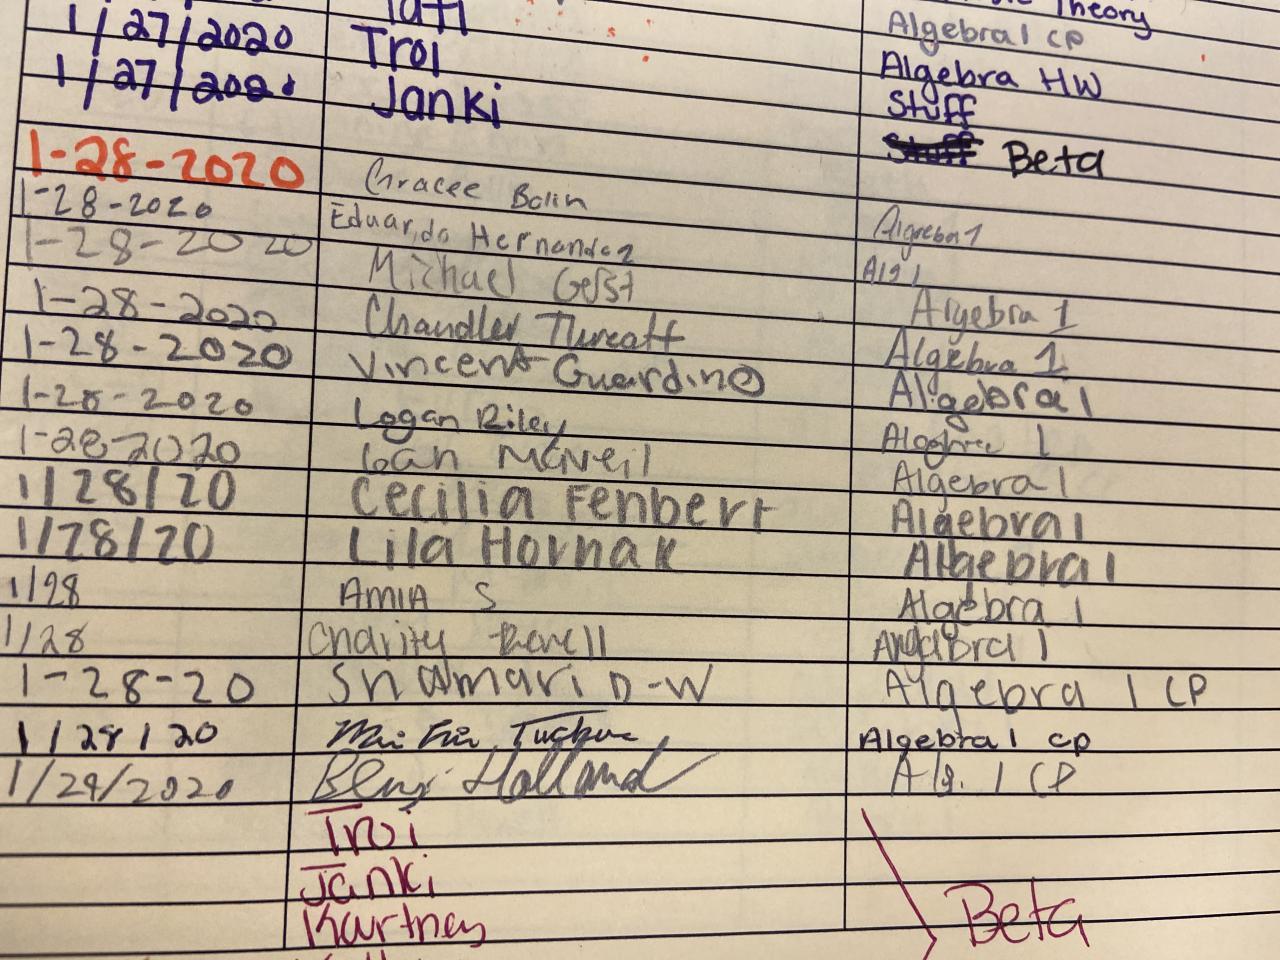 Theory
1/27/2020 Tati Algebra 1 CP
1/27/2020 Troi Algebra HW
Janki Stuff
1-28-2020 Beta
1-28-2020 Gracee Bolin Algreba 1
1-28-2020 Eduardo Hernandez Alg 1
Michael Geist Algebra 1
1-28-2020 Chandler Threatt Algebra 1
1-28-2020 Vincent Guardino Algebra 1
1-28-2020 Logan Riley Algebra 1
1-28-2020 Ian McNeil Algebra 1
1/28/20 Cecilia Fenbert Algebra 1
1/28/20 Lila Hornak Algebra 1
1/28 AMIA S Algebra 1
1/28 Charity 1
1-28-20 Shamari D-W Algebra 1 CP
1/28/20 Algebra 1 CP
1/29/2020 Holland Alg. 1 CP
Troi
Janki
Kartney Beta